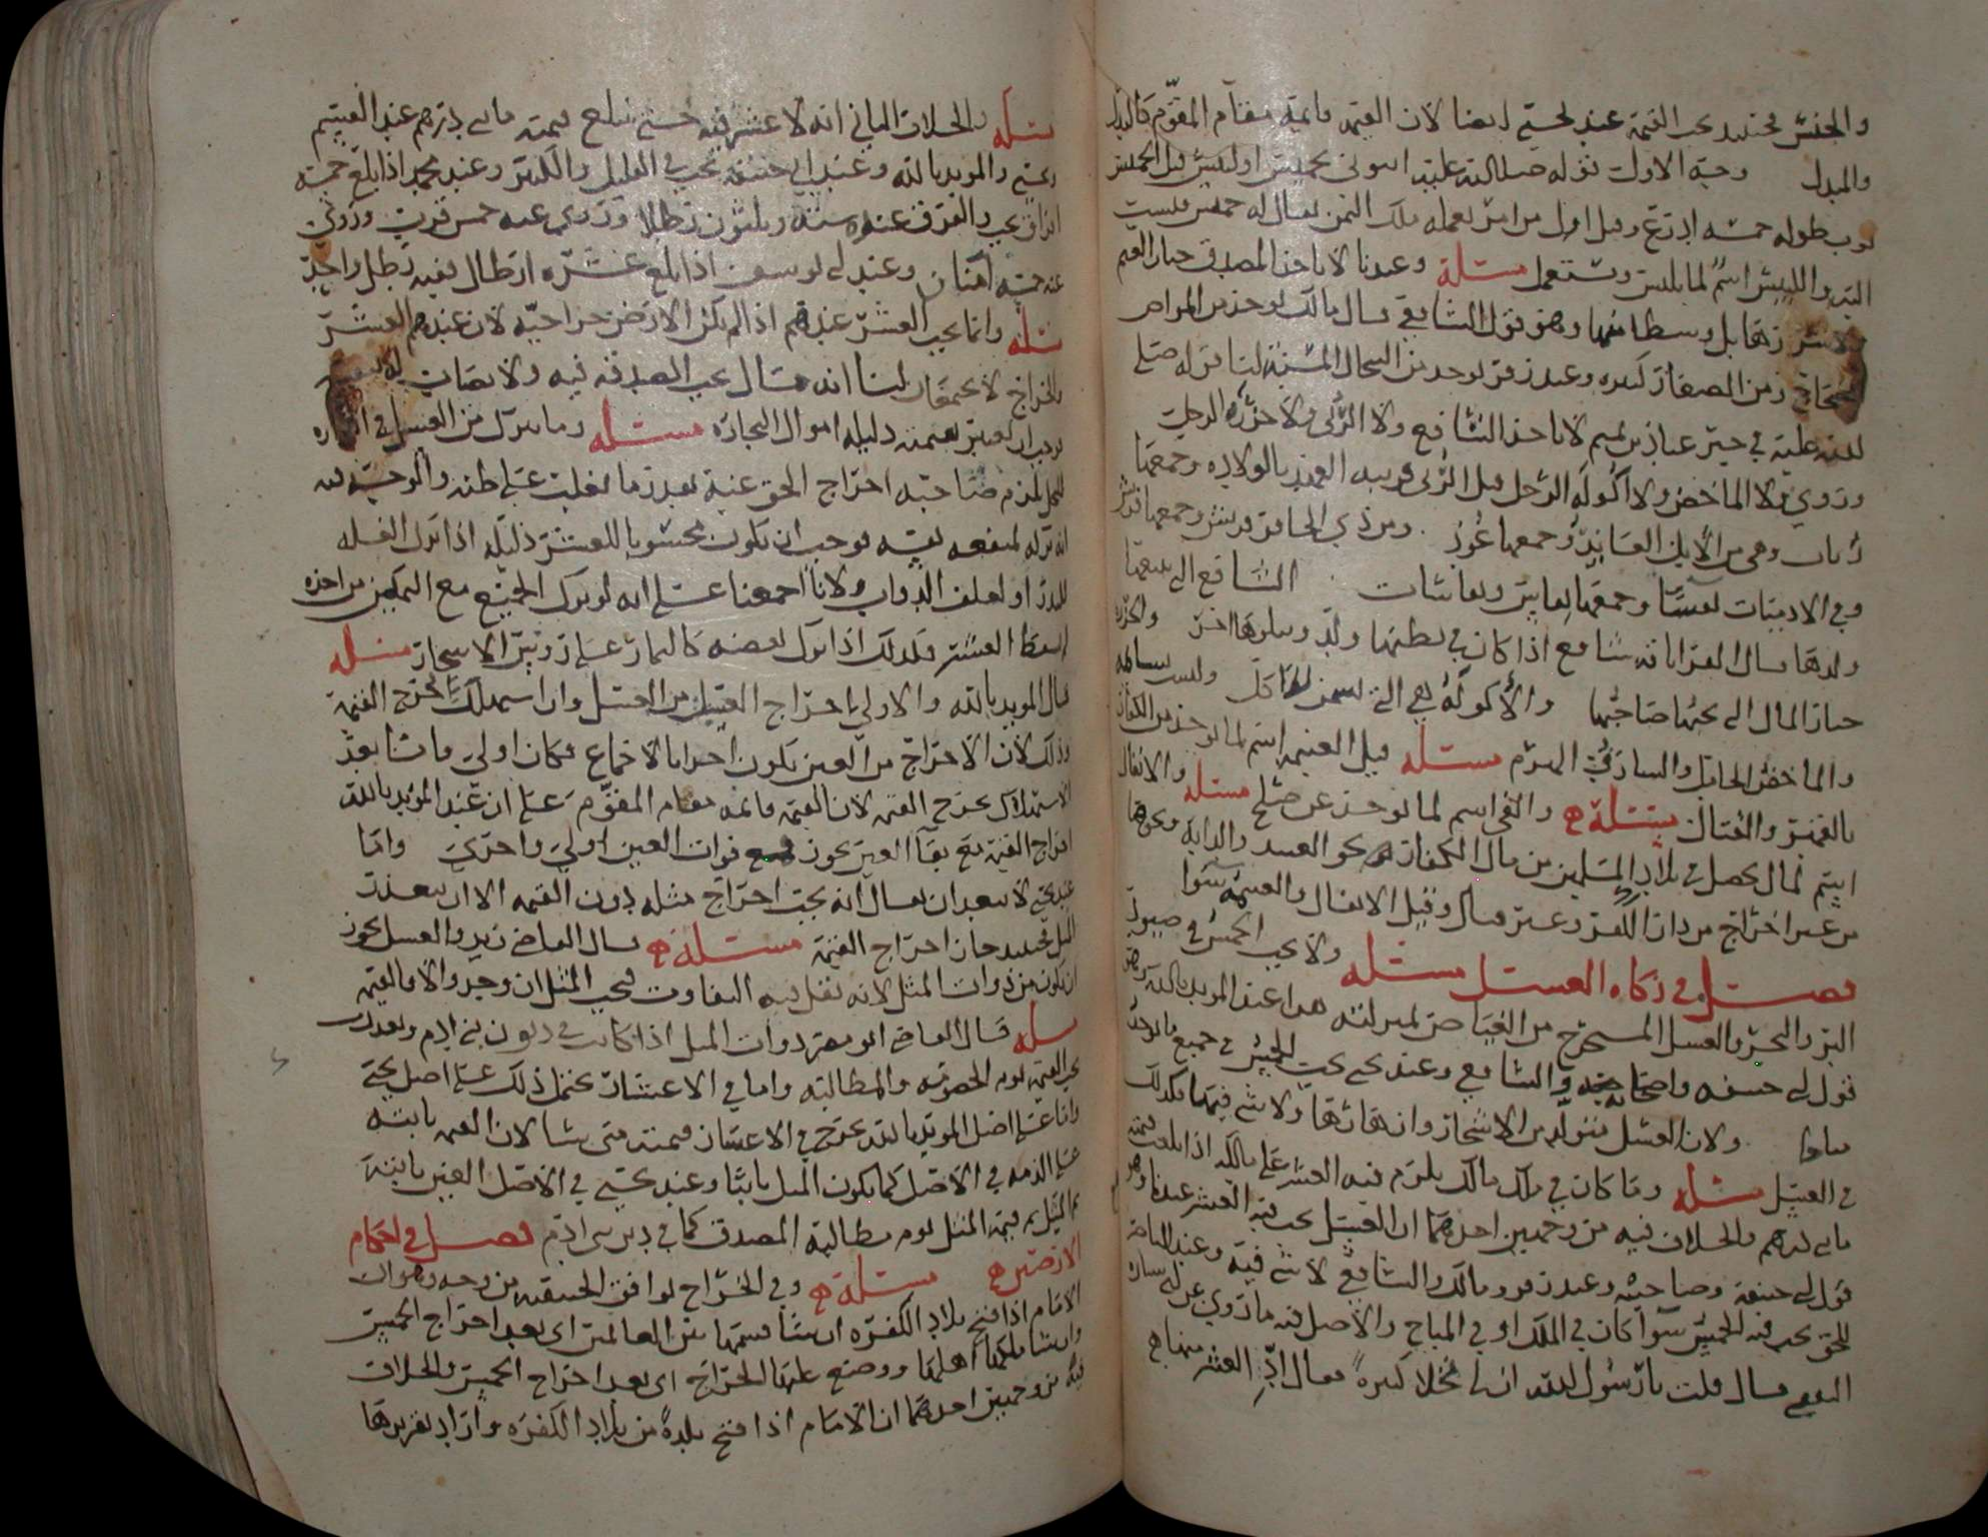 والجنس فحينئذ يجب القيمة عند يحيى ايضا لان القيمة قائمة مقام المقوّم كالبدل
والمبدل وجه الاول قوله صلى الله عليه ايتوني بخميس او لبيس قيل الخميس
ثوب طوله خمسة اذرع وقيل اول من امر بعمله ملك اليمن يقال له خميس فنسبت
اليه واللبيس اسم لما يلبس ويستعمل مسئلة وعندنا لا ياخذ المصدق خيار الغنم
ولا شرارها بل وسطا منها وهو قول الشافعي وقال مالك يوخذ من المراض
من الصغار كبيره وعند زفر يوخذ من السخال المسنة لنا قوله صلى
الله عليه في خبر عباد بن تميم لا ياخذ الشافع ولا الربى ولا حزرة الرجل
وروي ولا الماخض ولا اكولة الرجل قيل الربى قريبه العهد بالولاده وجمعها
رباب وهي من الابل العائذ وجمعها عُوذ ومن ذي الحافر فريش وجمعها فرش
وفي الادميات نفسا وجمعها نفايس ونفاسات الشافع التي معها
ولدها قال الفرا ناقه شافع اذا كان في بطنها ولد ويتلوها اخر
خيار المال التي يحبها صاحبها والأكولة هي التي تسمن للاكل وليست بسائمة
والماخض الحامل والشارف الهرم مسئله قيل الغنيمه اسم لما يوخذ من الكفار
بالقهر والقتال مسئلة والفي اسم لما يوخذ عن صلح مسئله والانفال
اسم لما يحصل في بلاد المسلمين من مال الكفار نحو العبد والدابة ونحوها
من غير اخراج من دار الكفر وغير قتال وقيل الانفال والغنيمة سوا
فصل في زكاه العسل مسئله ولا يجب الخمس في صيود
البر والبحر والعسل المستخرج من الغياض هذا عند المويد بالله وهو
قول ابي حنيفه واصحابه والشافعي وعند يحيى يجب الخمس في جميع
ولان العسل يتولد من الاشجار وانهارها ولا شي فيها فكذلك
في العسل مسئله وما كان في ملك مالك يلزم فيه العشر على مالكه اذا بلغت قيمته
مايتي درهم والخلاف فيه من وجهين احدهما ان العسل يجب فيه العشر عندنا وهو
قول ابي حنيفة وصاحبيه وعند زفر ومالك والشافعي لا شي فيه وعند الناصر
للحق يجب فيه الخمس سوا كان في الملك او في المباح والاصل فيه ما روي عن ابي سيارة
قال قلت يا رسول الله ان لي نحلا كثيرة فقال ادِّ العشر منها
مسئله والخلاف الثاني انه لا عشر فيه حتى تبلغ قيمته مايتي درهم عند القسم
ويحيى والمويد بالله وعند ابي حنيفة يجب في القليل والكثير وعند محمد اذا بلغ خمسة
افراق يجب والفرق عنده ستة وثلثون رطلا وروي عنه خمس قرب وروي
عنه خمسة امنان وعند ابي يوسف اذا بلغ عشرة ارطال ففيه رطل واحد
مسئله وانما يجب العشر عندهم اذا لم تكن الارض خراجيّه لان عندهم العشر
والخراج لا يجتمعان لنا انه مال تجب الصدقة فيه ولا نصاب له في نفسه
فوجب ان يعتبر بقيمته دليله اموال التجارة مسئله وما يترك من العسل في
للنحل يلزم صاحبه اخراج الحق عنه بعدما يغلب على ظنه والوجه فيه
انه تركه لمنفعه نفسه فوجب ان يكون محسوبا للعشر دليله اذا ترك الغله
للبذر او لعلف الدواب ولانا اجمعنا على انه لو ترك الجميع مع التمكن من اخذه
العشر فكذلك اذا ترك بعضه كالثمار على رووس الاشجار مسئله
قال المويد بالله والاولى اخراج العسل من العسل وان استهلك اخرج القيمة
وذلك لان الاخراج من العين يكون اجزا بالاجماع فكان اولى واما بعد
الاستهلاك يخرج القيمه لان القيمه قائمه مقام المقوّم على ان عند المويد بالله
اخراج القيمة مع بقا العين يجوز فمع فوات العين اولى واحرى واما
عند يحيى لا يبعد ان يقال انه يجب اخراج مثله دون القيمه الا ان يتعذر
المثل فحينئذ جاز اخراج القيمة مسئلة قال القاضي زيد والعسل يجوز
ان يكون من ذوات المثل لانه يقل فيه التفاوت فيجب المثل ان وجد والا فالقيمه
مسئله قال القاضي ابو مضر ذوات المثل اذا كانت في ديون بني ادم وتعذرت
يجب القيمة يوم الخصومه والمطالبه واما في الاعشار يحتمل ذلك على اصل يحيى
واما على اصل المويد بالله يخرج في الاعشار قيمته متى شا لان القيمه ثابتة
على الذمه في الاصل كما يكون المثل ثابتا وعند يحيى في الاصل العين ثابتة
ثم المثل ثم قيمة المثل يوم مطالبة المصدق كما في دين بني ادم فصل في احكام
الارضين مسئلة وفي الخراج يوافق الحنفيه من وجه وهو ان
الامام اذا فتح بلاد الكفره ان شا قسمها بين الغانمين اي بعد اخراج الخمس
وان شا ملكها اهلها ووضع عليها الخراج اي بعد اخراج الخمس والخلاف
فيه من وجهين احدهما ان الامام اذا فتح بلدة من بلاد الكفرة واراد تقريرها